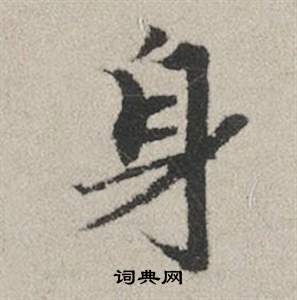 身
词典网